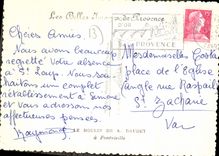 Les Belles Images de Provence
Chères Amies.
Nous avons beaucoup
regretté votre absence
à St Loup. Nous sou-
haitons un complet
rétablissement à Simone
et vous adressons nos
affectueuses pensées.
Raymond
PROVENCE
Mesdemoiselles
place de l'Eglise
angle rue Raspail
St Zacharie
Var
LE MOULIN DE A. DAUDET
à Fontvieille